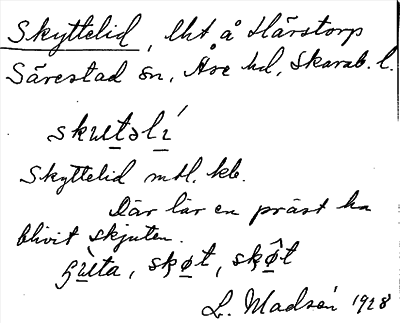 Skyttelid, lht å Härstorp
Särestad sn, Åse hd, Skarab. l.
skʉtəlí
Skyttelid mtl. kb.
Där lär en präst ha
blivit skjuten.
sköt, sköt
L. Madsén 1928